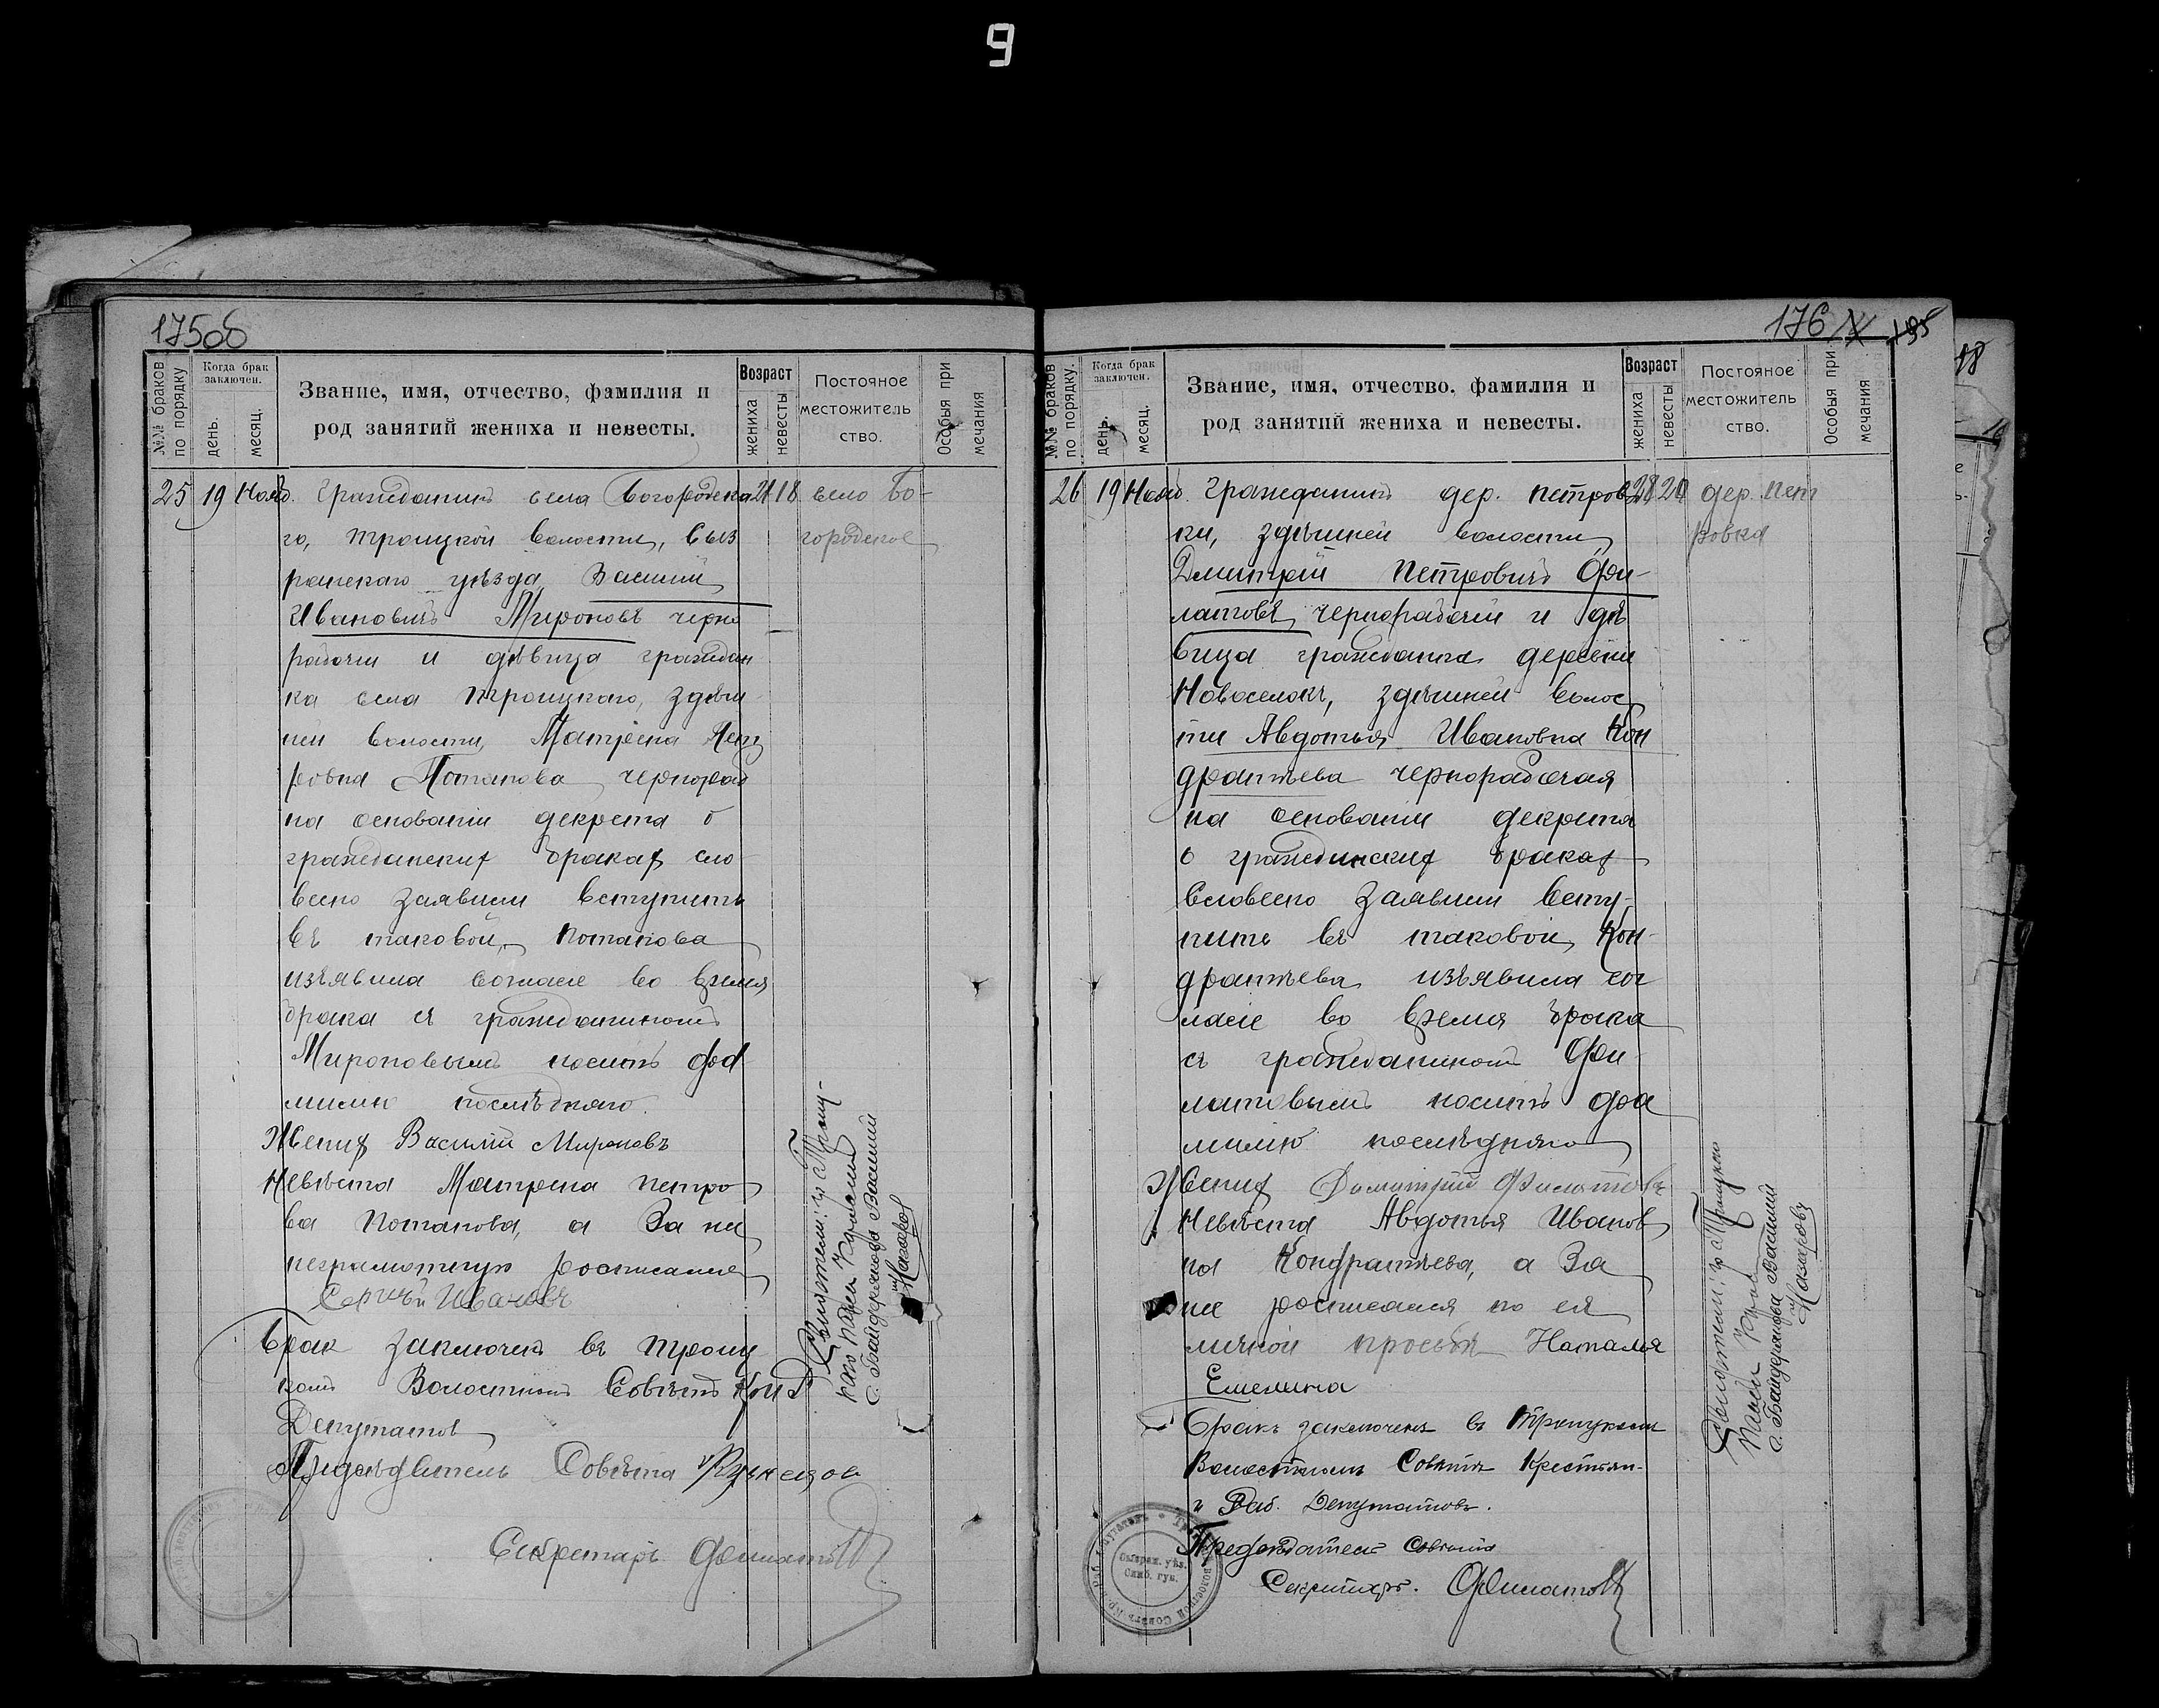 9
175об
№№ браков по порядку
Когда брак заключен.
день.
месяц.
Звание, имя, отчество, фамилия и
род занятий жениха и невесты.
Возраст
жениха
невесты
Постояное
местожитель
ство.
Особыя при
мечания
25 19 Нояб. Гражданинъ села Богородска 21 18 село Бо-
го, Троицкой волости, Сыз городское
ранскаго уѣзда, Василий
Ивановичъ Мироновъ черно
рабочий и дѣвица граждан
ка села Троицкаго, здѣш
ней волости, Матрена Пет
ровна Потапова чернораб
на основании декрета о
гражданских браках сло
весно заявили вступить
въ таковой, Потапова
изъявила согласие во время
брака съ гражданиномъ
Мироновымъ носить фа
милию послѣдняго.
Жених Василий Мироновъ
Невѣста Матрена Петро
ва Потапова, а За не
неграмотную росписался
Сергѣй Ивановъ
Брак заключен въ Троиц
комъ Волостномъ Совѣтѣ К и Р
Депутатов
Предсѣдатель Совѣта Кузнецов
Секретарь Филатов
Свидѣтели: гр Троиц-
каго
с. Байдерякова Василий
Назаров
176 195
18
№№ браков по порядку.
Когда брак заключен.
день.
месяц.
Звание, имя, отчество, фамилия и
род занятий жениха и невесты.
Возраст
жениха
невесты
Постояное
местожитель
ство.
Особыя при
мечания
26 19 Нояб. Гражданинъ дер. Петров 28 20 дер. Пет
ки, здѣшней волости, ровка
Дмитрий Петровичъ Фи-
латовъ, чернорабочий и дѣ
вица гражданка деревни
Новоселокъ, здѣшней волос
ти Авдотья Ивановна Кон
дратьева чернорабочая
на основании декрета
о гражданских браках
словесно заявили всту-
пить въ таковой, Кон-
дратьева изъявила сог
ласие во время брака
съ гражданиномъ Фи-
латовымъ носить фа
милию послѣдняго
Жених Димитрий Филатовъ
Невѣста Авдотья Иванов
на Кондратьева, а За
не росписался по ея
личной просьбѣ Наталья
Емелина
Бракъ заключенъ въ Троицкомъ
Волостномъ Совѣтѣ Крестьян-
и Раб. Депутатовъ.
Председатель Совѣта
Секретарь. Филатов
Свидѣтели: гр Троицкой
с. Байдерякова Василий
Назаровъ
Сызран. уѣз.
Симб. губ.